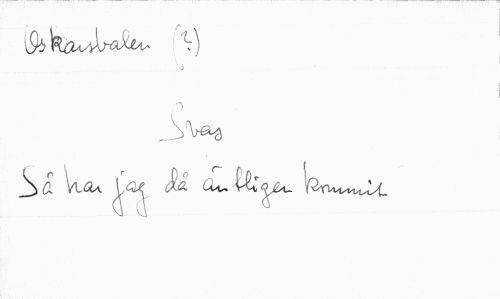 Oskarsbalen (?)
Svas
Så har jag då äntligen kommit